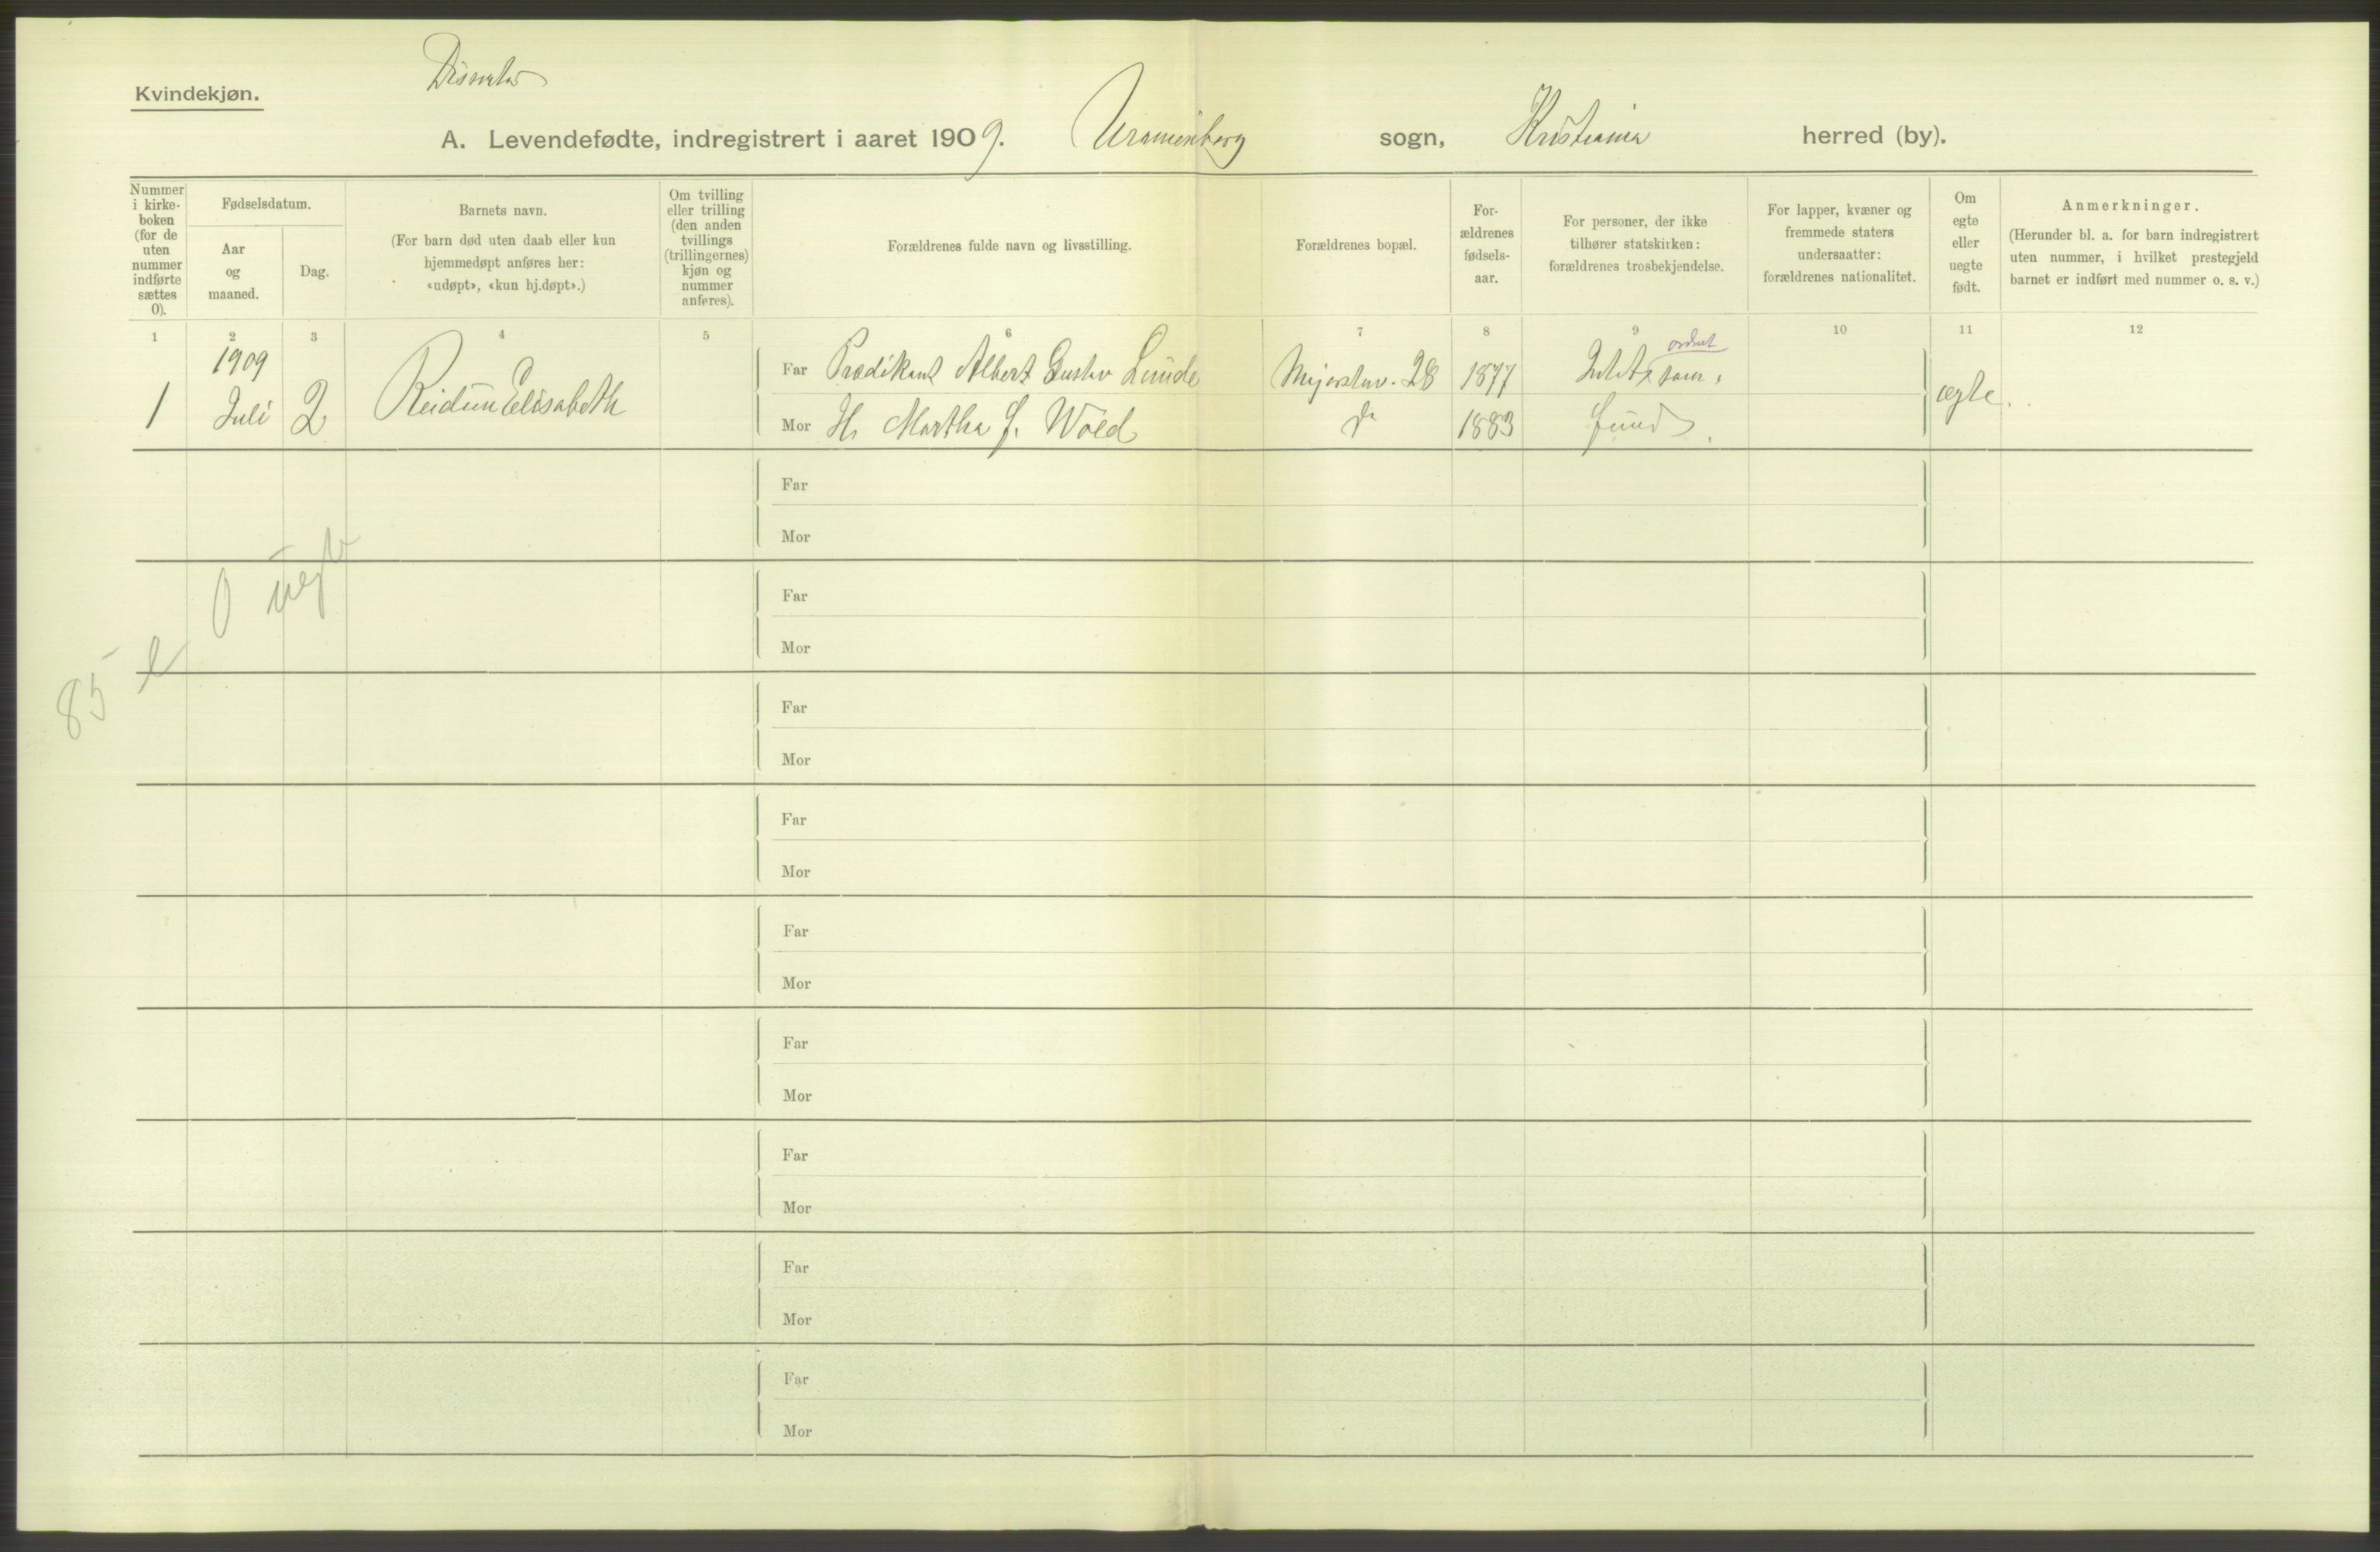 Kvindekjøn.
A. Levendefødte, indregistrert i aaret 1909. Uranienborg sogn, Kristiania herred (by).
Nummer i kirke-boken (for de uten nummer indførte sættes 0).
Fødselsdatum.
Aar og maaned.
Dag.
Barnets navn.
(For barn død uten daab eller kun hjemmedøpt anføres her: «udøpt», «kun hj.døpt».)
Om tvilling eller trilling (den anden tvillings (trillingernes) kjøn og nummer anføres).
Forældrenes fulde navn og livsstilling.
Forældrenes bopæl.
For-ældrenes fødsels-aar.
For personer, der ikke tilhører statskirken: forældrenes trosbekjendelse.
For lapper, kvæner og fremmede staters undersaatter: forældrenes nationalitet.
Om egte eller uegte født.
Anmerkninger.
(Herunder bl. a. for barn indregistrert uten nummer, i hvilket prestegjeld barnet er indført med nummer o. s. v.)
1 2 3 4 5 6 7 8 9 10 11 12
1 1909 Juli 2 Reidun Elisabeth
Far Prædikant Albert Gustav Lunde 28 1877 ordnet
Mor H. Martha J. Wold do 1883 fund
ægte.
Far
Mor
0 uegt
Far
Mor
85 e
Far
Mor
Far
Mor
Far
Mor
Far
Mor
Far
Mor
Far
Mor
Far
Mor